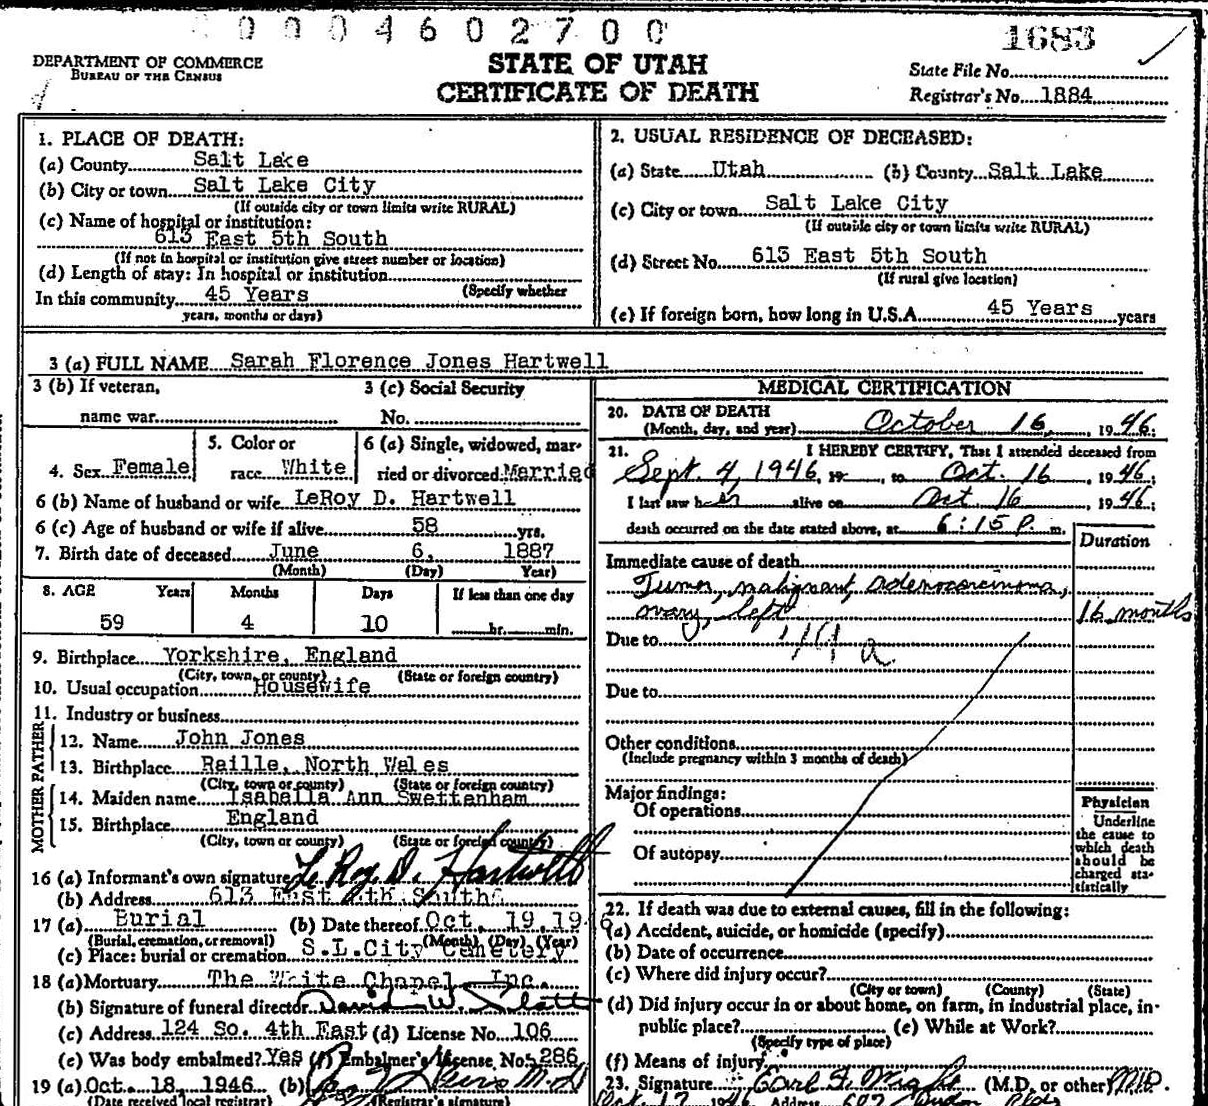 0 0 0 4 6 0 2 7 0 0
1683
DEPARTMENT OF COMMERCE
BUREAU OF THE CENSUS
STATE OF UTAH
CERTIFICATE OF DEATH
State File No.
Registrar's No. 1884
1. PLACE OF DEATH:
(a) County Salt Lake
(b) City or town Salt Lake City
(If outside city or town limits write RURAL)
(c) Name of hospital or institution:
613 East 5th South
(If not in hospital or institution give street number or location)
(d) Length of stay: In hospital or institution
(Specify whether
In this community 45 Years
years, months or days)
2. USUAL RESIDENCE OF DECEASED:
(a) State Utah (b) County Salt Lake
(c) City or town Salt Lake City
(If outside city or town limits write RURAL)
(d) Street No. 613 East 5th South
(If rural give location)
(e) If foreign born, how long in U.S.A. 45 Years years
3 (a) FULL NAME Sarah Florence Jones Hartwell
3 (b) If veteran,
name war
3 (c) Social Security
No.
4. Sex Female
5. Color or
race White
6 (a) Single, widowed, mar-
ried or divorced Married
6 (b) Name of husband or wife LeRoy D. Hartwell
6 (c) Age of husband or wife if alive 58 yrs.
7. Birth date of deceased June 6, 1887
(Month) (Day) Year)
8. AGE Years Months Days If less than one day
59 4 10 hr. min.
9. Birthplace Yorkshire, England
(City, town, or county) (State or foreign country)
10. Usual occupation Housewife
11. Industry or business
FATHER
12. Name John Jones
13. Birthplace Raille, North Wales
(City, town or county) (State or foreign country)
MOTHER
14. Maiden name Isabella Ann Swettenham
15. Birthplace England
(City, town or county) (State or foreign county)
16 (a) Informant's own signature Le Roy D. Hartwell
(b) Address 613 East South
17 (a) Burial (b) Date thereof Oct. 19, 19
(Burial, cremation, or removal) (Month) (Day) (Year)
(c) Place: burial or cremation S.L.City Cemetery
18 (a) Mortuary The White Chapel, Inc.
(b) Signature of funeral director David W.
(c) Address 124 So. 4th East (d) License No. 106
(e) Was body embalmed? Yes (f) Embalmer's License No. 286
19 (a) Oct. 18, 1946 (b) M.D.
(Date received local registrar) (Registrar's signature)
MEDICAL CERTIFICATION
20. DATE OF DEATH
(Month, day, and year) October 16, 1946;
21. I HEREBY CERTIFY, That I attended deceased from
Sept. 4, 1946, 19 , to Oct. 16 1946;
I last saw her alive on Oct 16, 1946;
death occurred on the date stated above, at 6:15 P. m.
Duration
Immediate cause of death
Tumor, malignant, adenocarcinoma,
ovary, left 16 months
Due to
Due to
Other conditions
(Include pregnancy within 3 months of death)
Major findings:
Of operations
Of autopsy
Physician
Underline
the cause to
which death
should be
charged sta-
tistically
22. If death was due to external causes, fill in the following:
(a) Accident, suicide, or homicide (specify)
(b) Date of occurrence
(c) Where did injury occur?
(City or town) (County) (State)
(d) Did injury occur in or about home, on farm, in industrial place, in-
public place? (e) While at Work?
(Specify type of place)
(f) Means of injury
23. Signature (M.D. or other) M.D.
Oct. 17 1946 Address